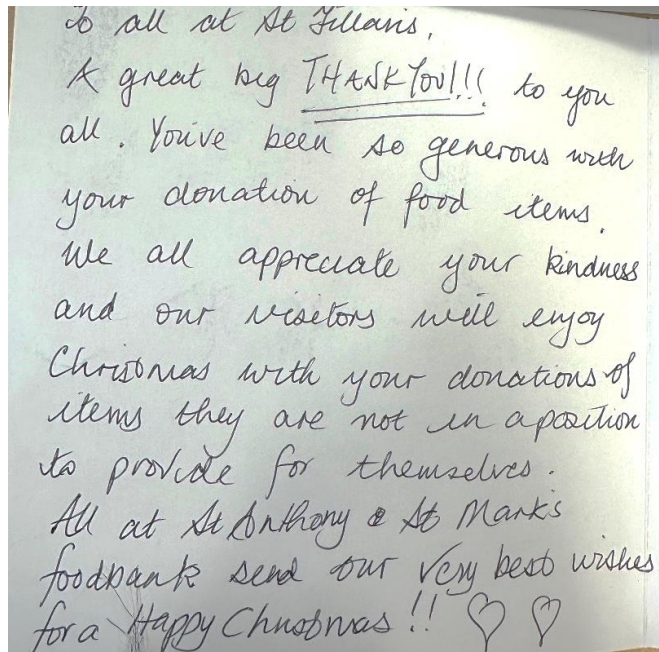 To all at St Fillans,
A great big THANK YOU!!! to you
all. You've been so generous with
your donation of food items.
We all appreciate your kindness
and our visitors will enjoy
Christmas with your donations of
items they are not in a position
to provide for themselves.
All at St Anthony & St Mark's
foodbank send our very best wishes
for a Happy Christmas!! ♡ ♡